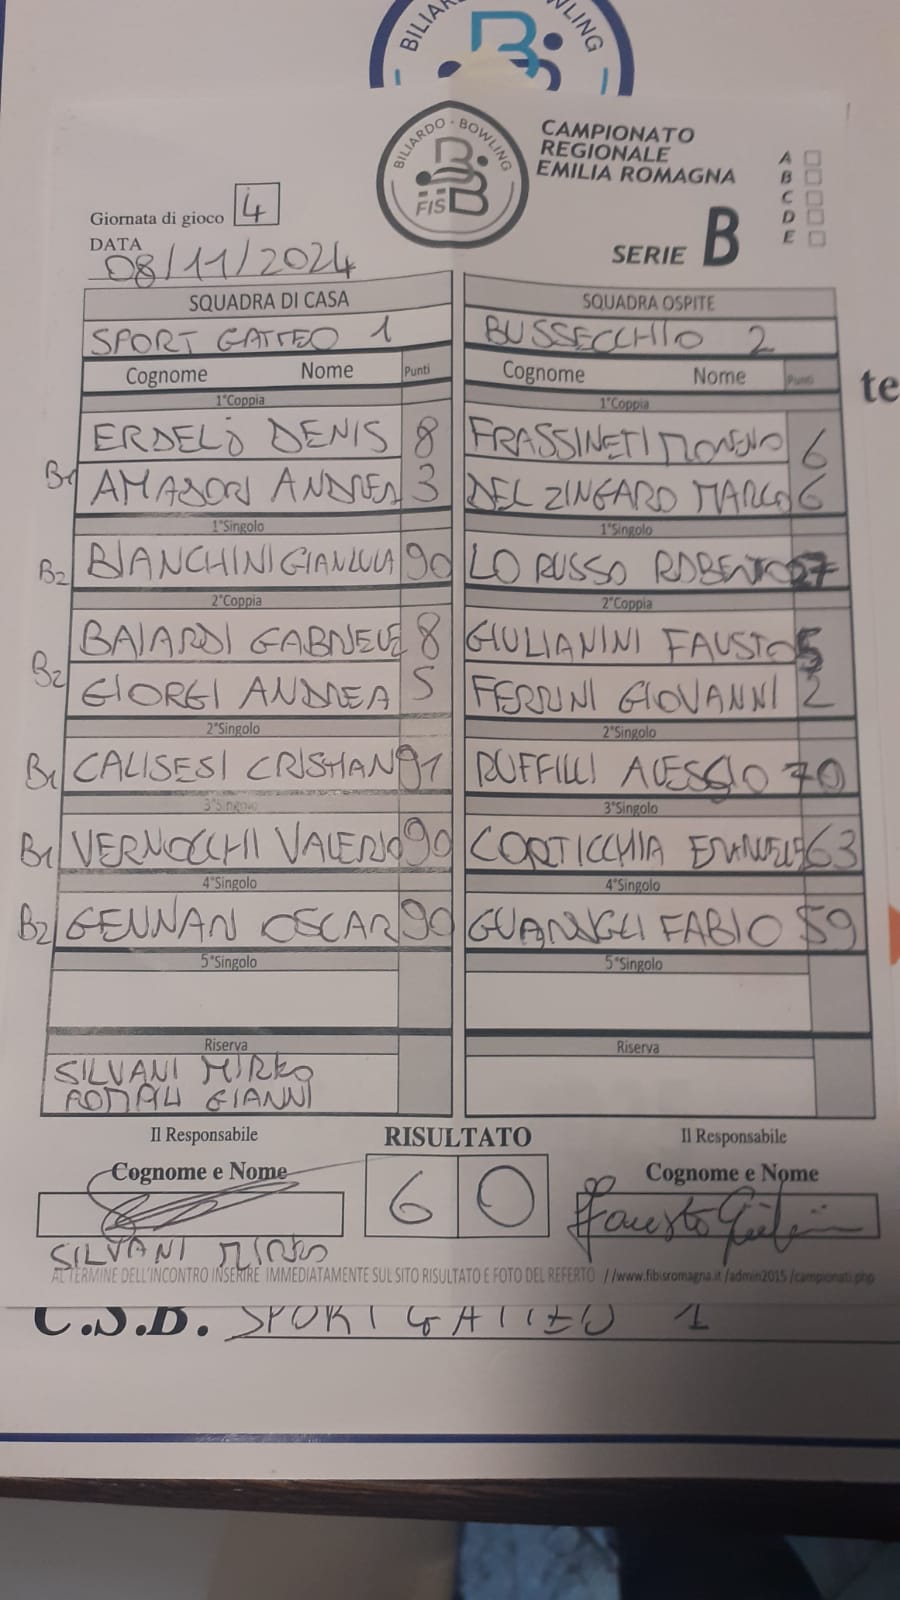 BILIARDO BOWLING
BILIARDO - BOWLING
FISBB
CAMPIONATO
REGIONALE
EMILIA ROMAGNA
A
B
C
D
E
SERIE B
Giornata di gioco 4
DATA
08/11/2024
SQUADRA DI CASA SQUADRA OSPITE
SPORT GATTEO 1 BUSSECCHIO 2
Cognome Nome Punti Cognome Nome Punti
te
1°Coppia 1°Coppia
ERDELJ DENIS 8 FRASSINETI MORENO 6
B1 AMADORI ANDREA 3 DEL ZINGARO MARCO 6
1°Singolo 1°Singolo
B2 BIANCHINI GIANLUCA 90 LO RUSSO ROBERTO
2°Coppia 2°Coppia
BAIARDI GABRIELE 8 GIULIANINI FAUSTO 5
B2 GIORGI ANDREA 5 FERRINI GIOVANNI 2
2°Singolo 2°Singolo
B1 CALISESI CRISTIAN 91 RUFFILLI ALESSIO 70
3°Singolo 3°Singolo
B1 VERNOCCHI VALERIO 90 CORTICCHIA EMANUELE 63
4°Singolo 4°Singolo
B2 GENNARI OSCAR 90 FABIO 59
5°Singolo 5°Singolo
Riserva Riserva
SILVANI MIRKO
GIANNI
Il Responsabile RISULTATO Il Responsabile
Cognome e Nome Cognome e Nome
6 0 Fausto
SILVANI MIRKO
AL TERMINE DELL'INCONTRO INSERIRE IMMEDIATAMENTE SUL SITO RISULTATO E FOTO DEL REFERTO //www.fibisromagna.it /admin2015 /campionati.php
C.S.B. SPORT GATTEO 1